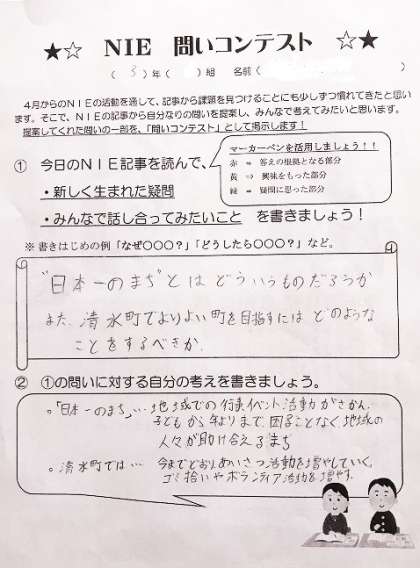 ★☆ NIE 問いコンテスト ☆★
( 3 )年 ( )組 名前( )
4月からのNIEの活動を通して、記事から課題を見つけることにも少しずつ慣れてきたと思い
ます。そこで、NIEの記事から自分なりの問いを提案し、みんなで考えてみたいと思います。
提案してくれた問いの一部を、「問いコンテスト」として掲示します!
マーカーペンを活用しましょう!!
赤 ⇒ 答えの根拠となる部分
黄 ⇒ 興味をもった部分
緑 ⇒ 疑問に思った部分
① 今日のNIE記事を読んで、
・新しく生まれた疑問
・みんなで話し合ってみたいこと を書きましょう!
※書きはじめの例「なぜ〇〇〇?」「どうしたら〇〇〇?」など。
"日本一のまち"とは どういうものだろうか
また、清水町でよりよい町を目指すには どのような
ことをするべきか.
② ①の問いに対する自分の考えを書きましょう。
。「日本一のまち」… 地域での行事イベント活動がさかん.
子どもから年よりまで、困ることなく地域の
人々が助け合えるまち
。清水町では… 今までどおりあいさつ活動を増やしていく.
ゴミ拾いやボランティア活動を増やす.